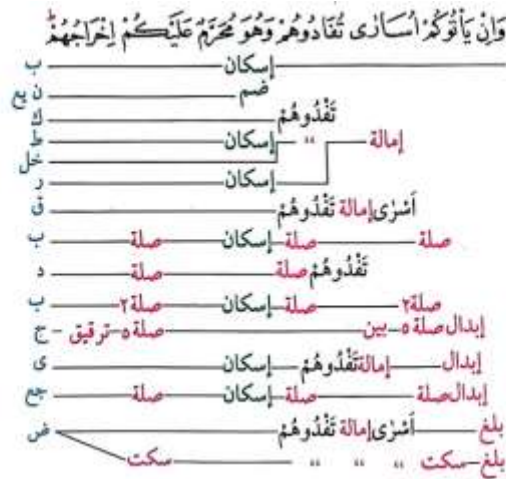 وَاِنْ يَأْتُوكُمْ اُسَارٰى تُفَادُوهُمْ وَهُوَ مُحَرَّمٌ عَلَيْكُمْ اِخْرَاجُهُمْ ط
إسكان ب
ضم ن يع
تَفْدُوهُمْ ك
إمالة " إسكان ط
خل
إسكان ر
أَسْرٰى إمالة تَفْدُوهُمْ ق
صلة صلة إسكان صلة ب
تَفْدُوهُمْ صلة صلة د
صلة٢ صلة إسكان صلة٢ ب
إبدال صلة٥ بين صلة٥ ترقيق ج
إبدال إمالة تَفْدُوهُمْ إسكان ى
إبدال صلة صلة إسكان صلة جع
بلغ أَسْرٰى إمالة تَفْدُوهُمْ ض
بلغ سكت " " " سكت